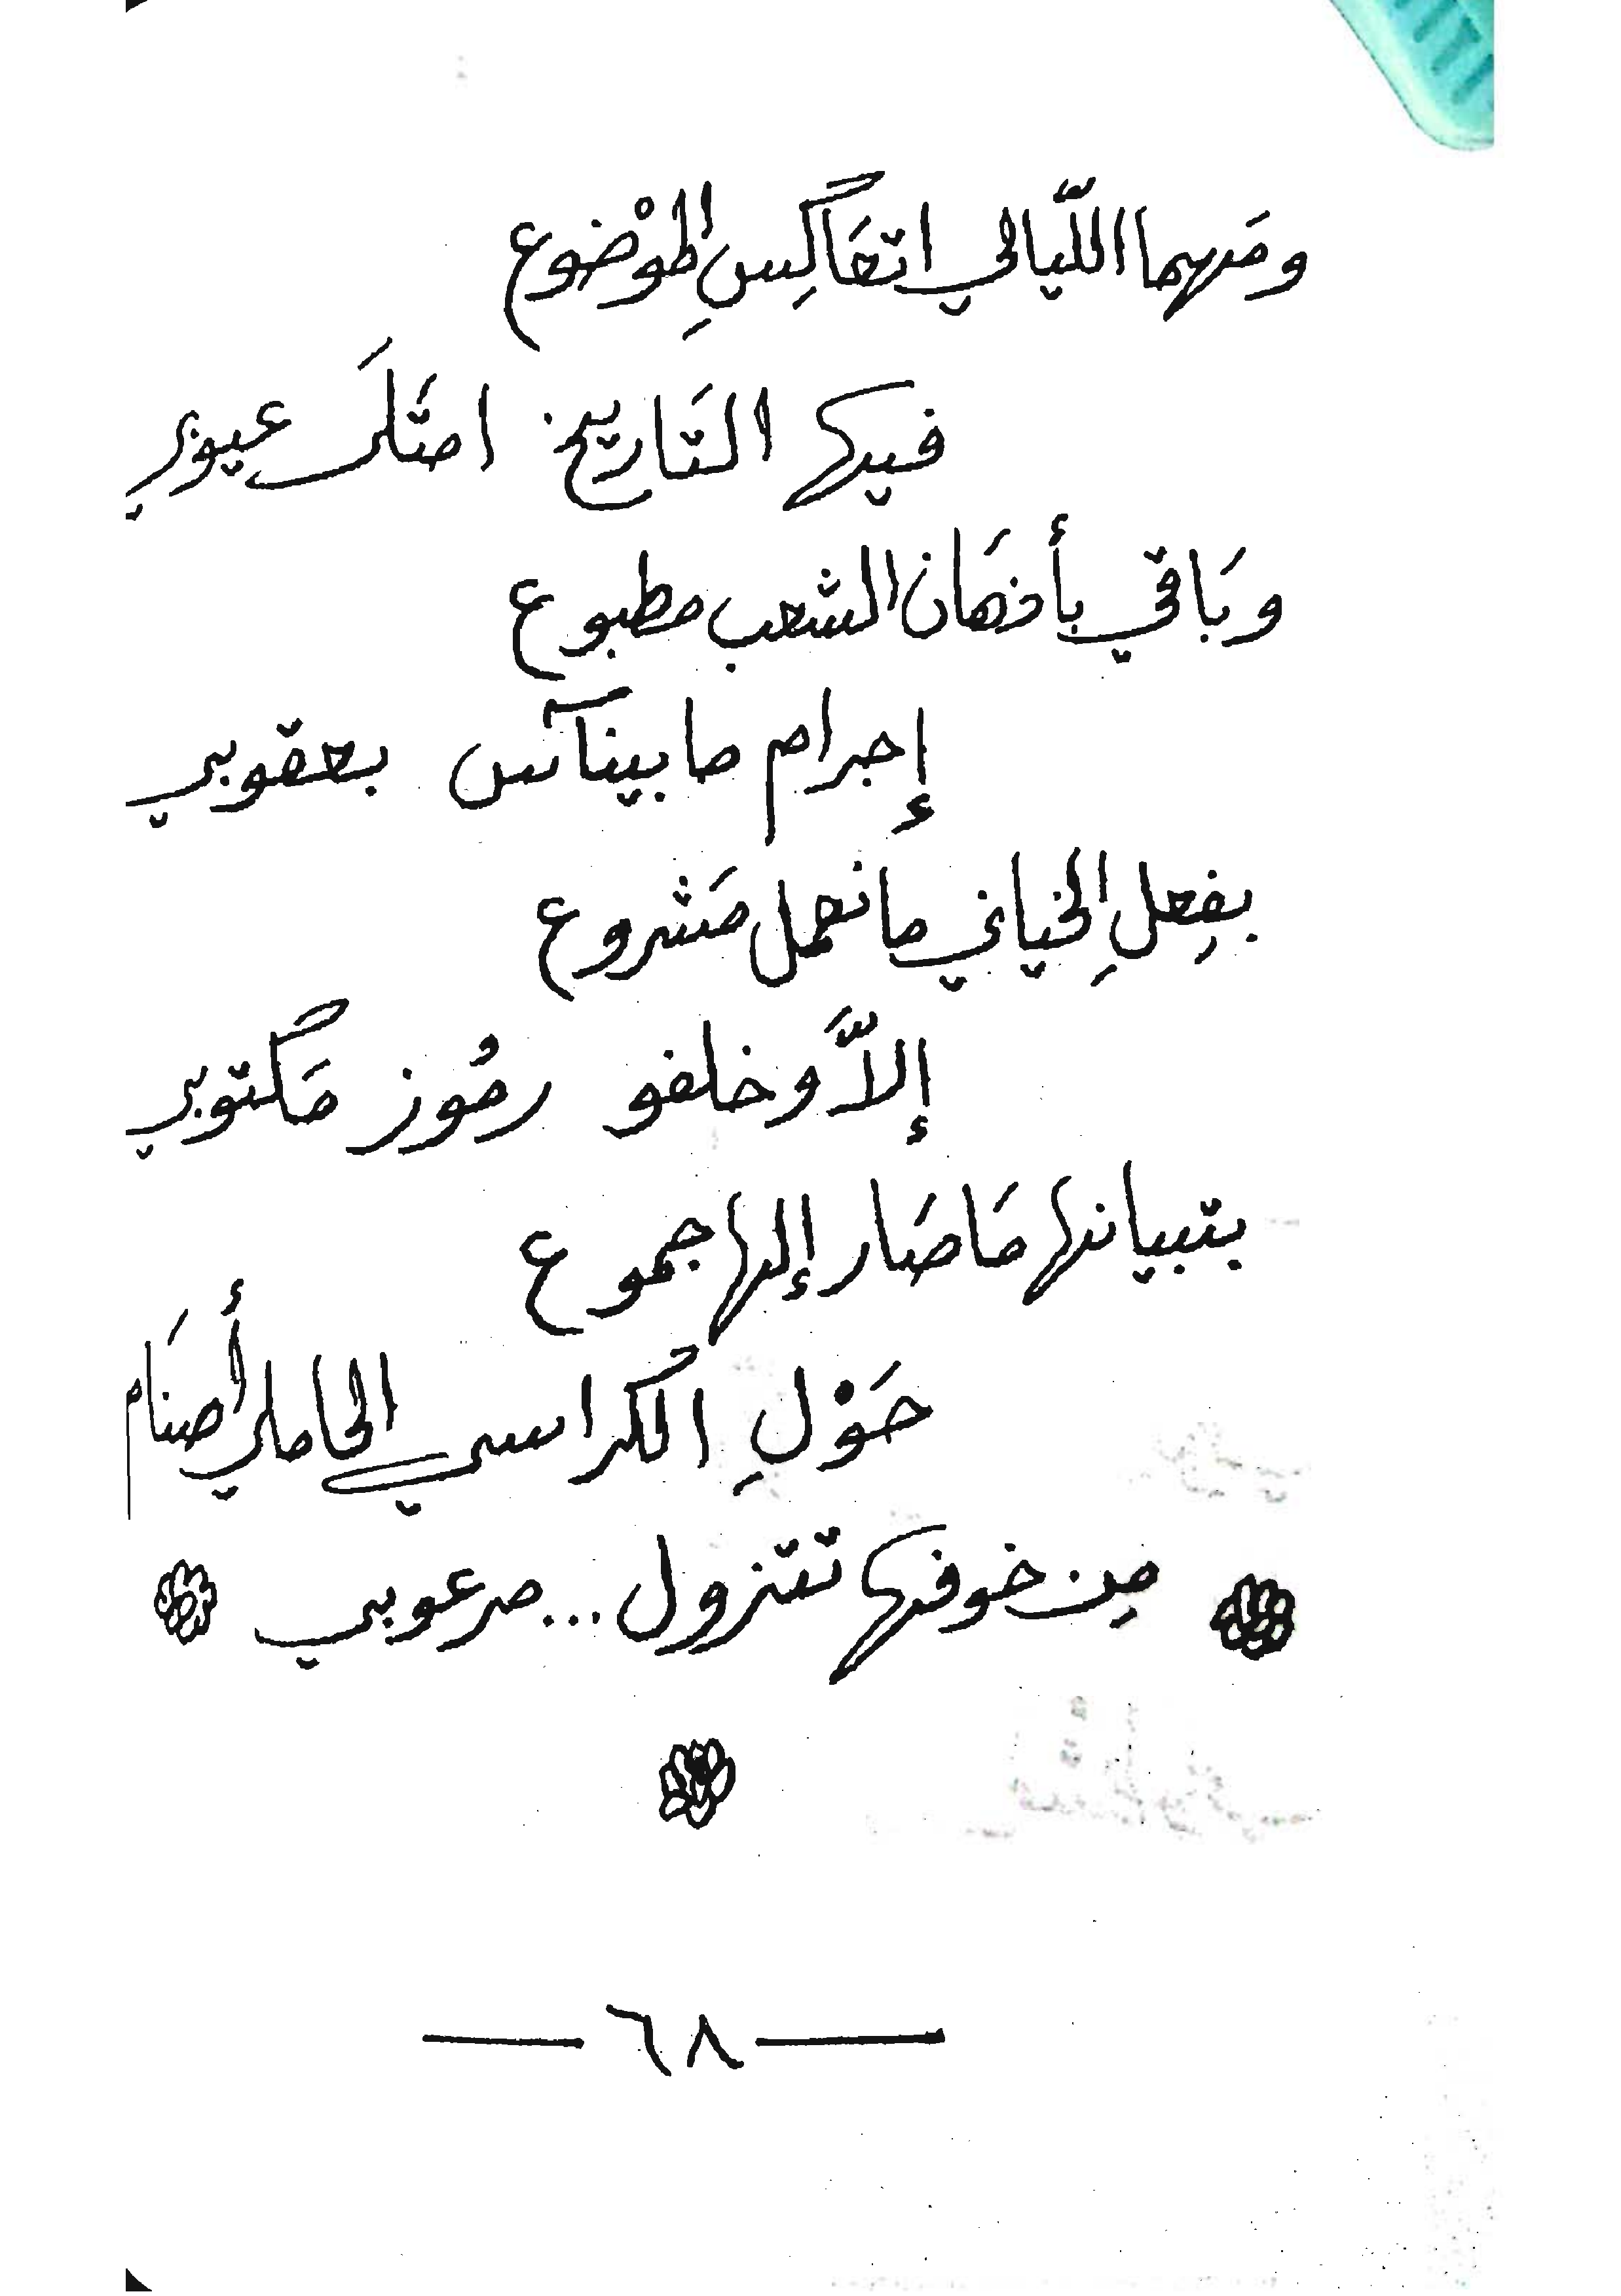 ومَهما اللّيالي اتعَاكِسِ الموْضوع
فيها التَاريخ امتَلَى عيوبي
وبَاقي بأذهَان الشعب مطبوع
إجرام ما بينآس بعقوبي
بفِعلِ الخياني ما نعمل مَشروع
إلاَّ وخلفو رمُوز مَكتوبي
بتبيانها مَا صَار إلها جموع
حَوْلِ الكراسي الحاملي أصنَام
مِن خوفها تتزول... مرعوبي
— ٦٨ —